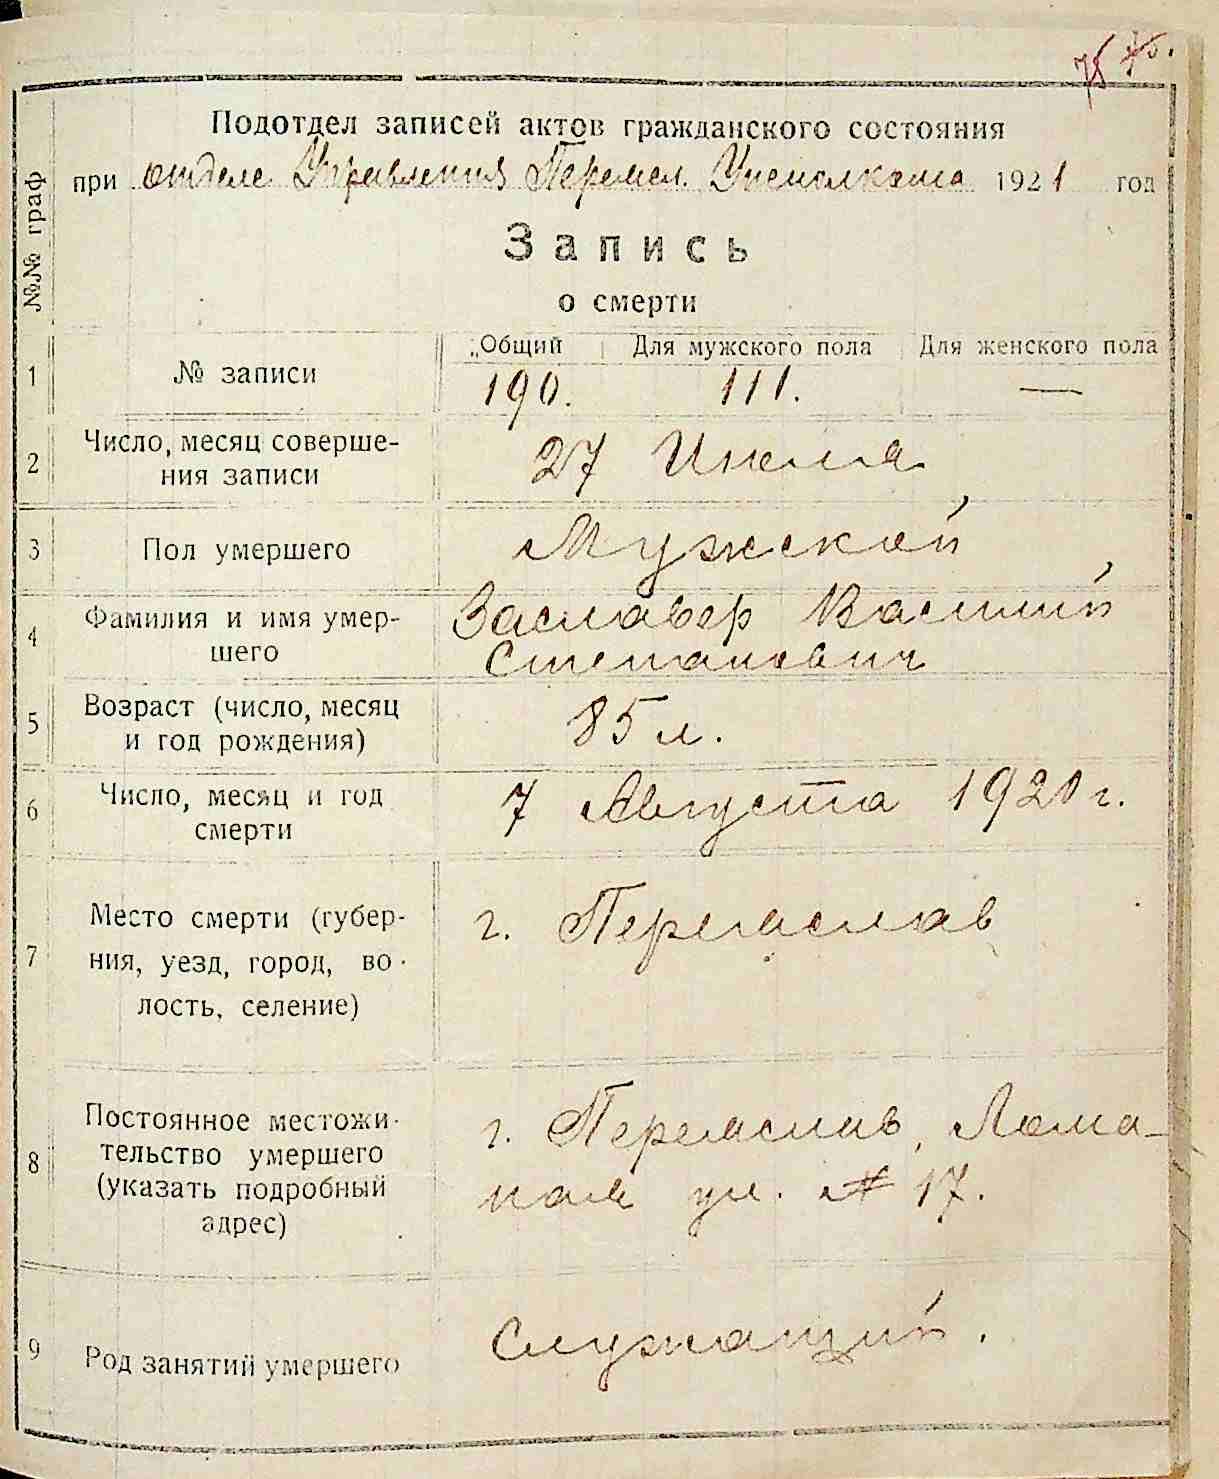 75
Подотдел записей актов гражданского состояния
при отделе Управления Перемсл. Уисполкома 1921 год
№№ граф
Запись
о смерти
„Общий Для мужского пола Для женского пола
1 № записи 190. 111. —
2 Число, месяц соверше-
ния записи
27 Июля
3 Пол умершего Мужской
4 Фамилия и имя умер-
шего
Заславер Василий
Степанович
5 Возраст (число, месяц
и год рождения)
85 л.
6 Число, месяц и год
смерти
7 Августа 1920 г.
7 Место смерти (губер-
ния, уезд, город, во-
лость, селение)
г. Переяслав
8 Постоянное местожи-
тельство умершего
(указать подробный
адрес)
г. Переяслав,
ул. № 17.
9 Род занятий умершего Служащий.